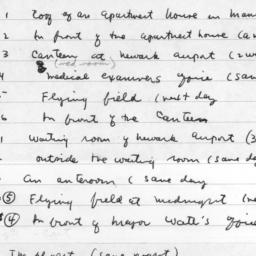 1 Roof of an apartment house in Man
2 In front of the apartment house (a w
3 Canteen at Newark airport (2 w
(red room)
4 medical examiners office (sam
5 Flying field (next day
6 In front of the Canteen
1 Waiting room of Newark Airport (3
2 outside the waiting room (same d
An anteroom (same day
5 Flying field at midnight (ne
4 In front of Major Watt's office
The planet (same night)